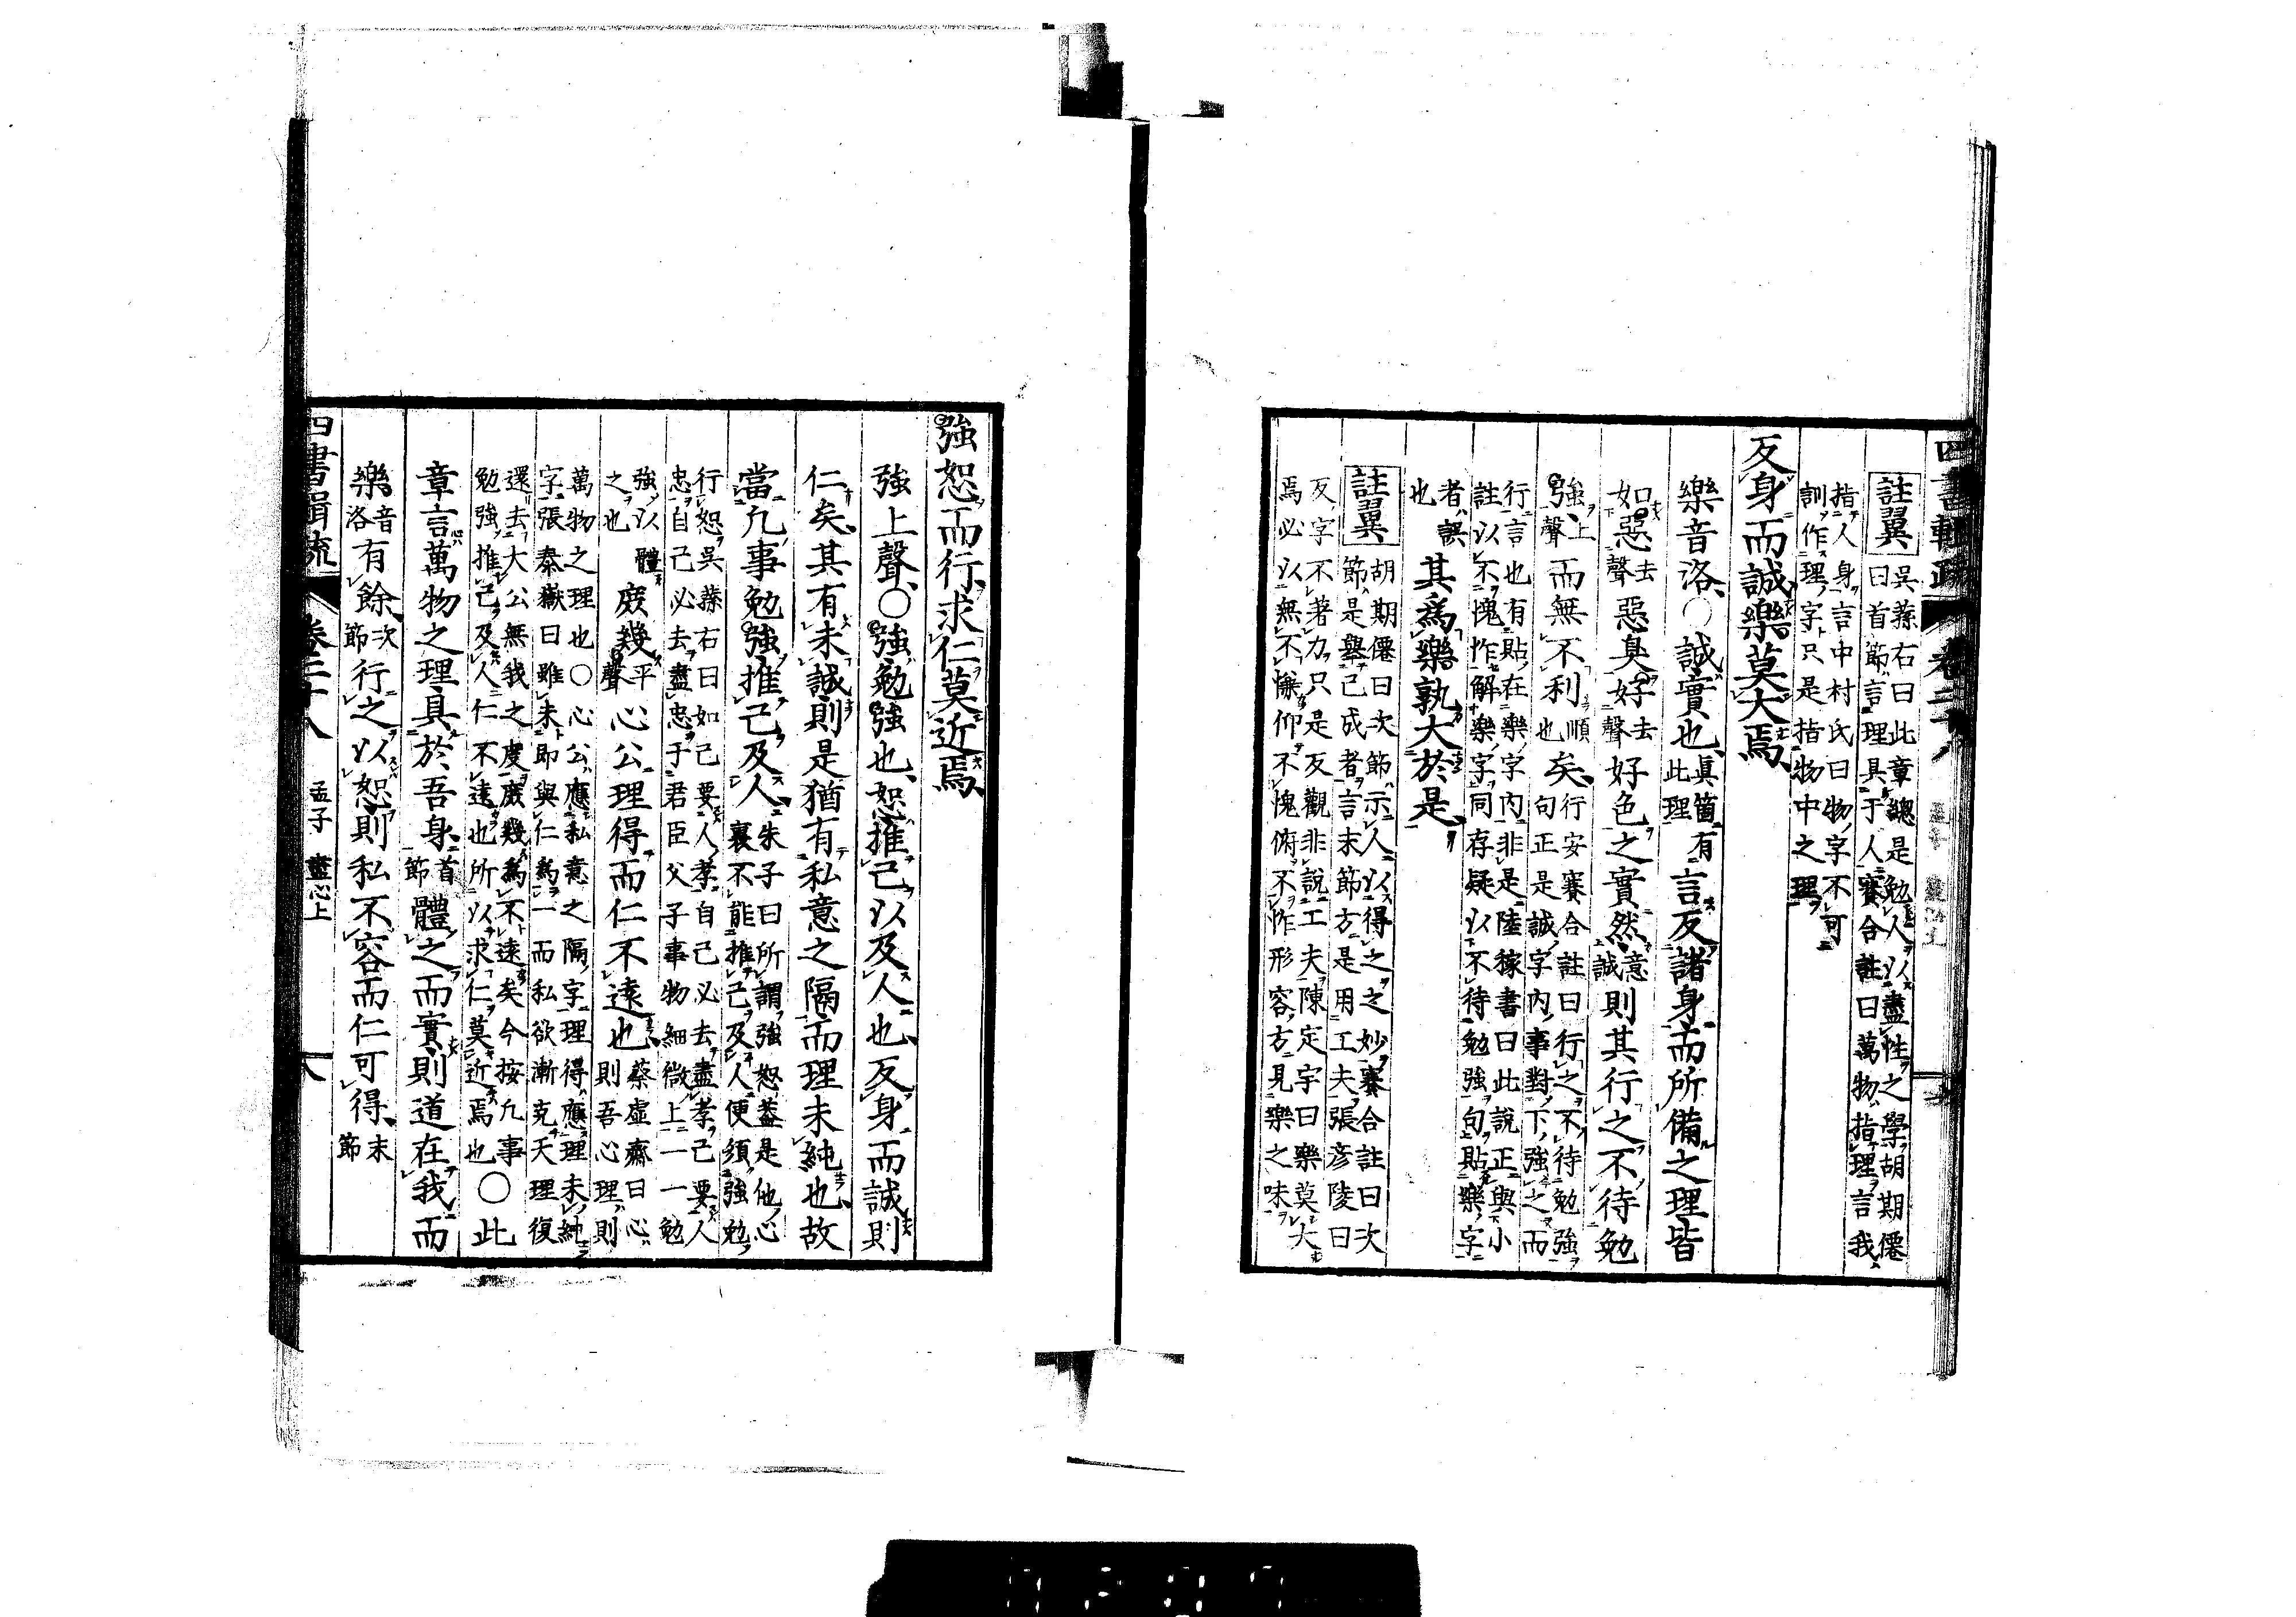 四書輯疏 卷二十八
註翼 吳蓀右曰此章總是勉人以盡性之學胡期僊
曰首節言理具于人賽合註曰萬物指理言我
指人身言中村氏曰物字不可
訓作理字只是指物中之理
反身而誠樂莫大焉
樂音洛○誠實也眞箇有此理言反諸身而所備之理皆
如惡去聲惡臭好去聲好色之實然意誠則其行之不待勉
強上聲而無不利順也矣行安賽合註曰行之不待勉強
句正是誠字內事對下強之而
行言也有貼在樂字內非是陸稼書曰此說正與小
註以不愧怍解樂字同存疑以不待勉強句貼樂字
者誤也其爲樂孰大於是
註翼 胡期僊曰次節示人以得之之妙賽合註曰次
節是舉已成者言末節方是用工夫張彥陵曰
反字不著力只是反觀非說工夫陳定宇曰樂莫大
焉必以無不慊仰不愧俯不怍形容方見樂之味
強恕而行求仁莫近焉
強上聲○強勉強也恕推己以及人也反身而誠則
仁矣其有未誠則是猶有私意之隔而理未純也故
當凡事勉強推己及人朱子曰所謂強恕蓋是他心
裏不能推己及人便須強勉
行恕吳蓀右曰如己要人孝自己必去盡孝己要人
忠自己必去盡忠于君臣父子事物細微上一一勉
強以體之也庶幾平聲心公理得而仁不遠也蔡虛齋曰心
則吾心理則
萬物之理也○心公應私意之隔字理得應理未純
字張秦嶽曰雖未卽與仁爲一而私欲漸克天理復
還去大公無我之度庶幾爲不遠矣今按凡事
勉強推己及人仁不遠也所以求仁莫近焉也○此
章言萬物之理具於吾身首節體之而實則道在我而
樂音洛有餘次節行之以恕則私不容而仁可得末節
四書輯疏 卷二十八 孟子 盡心上 八